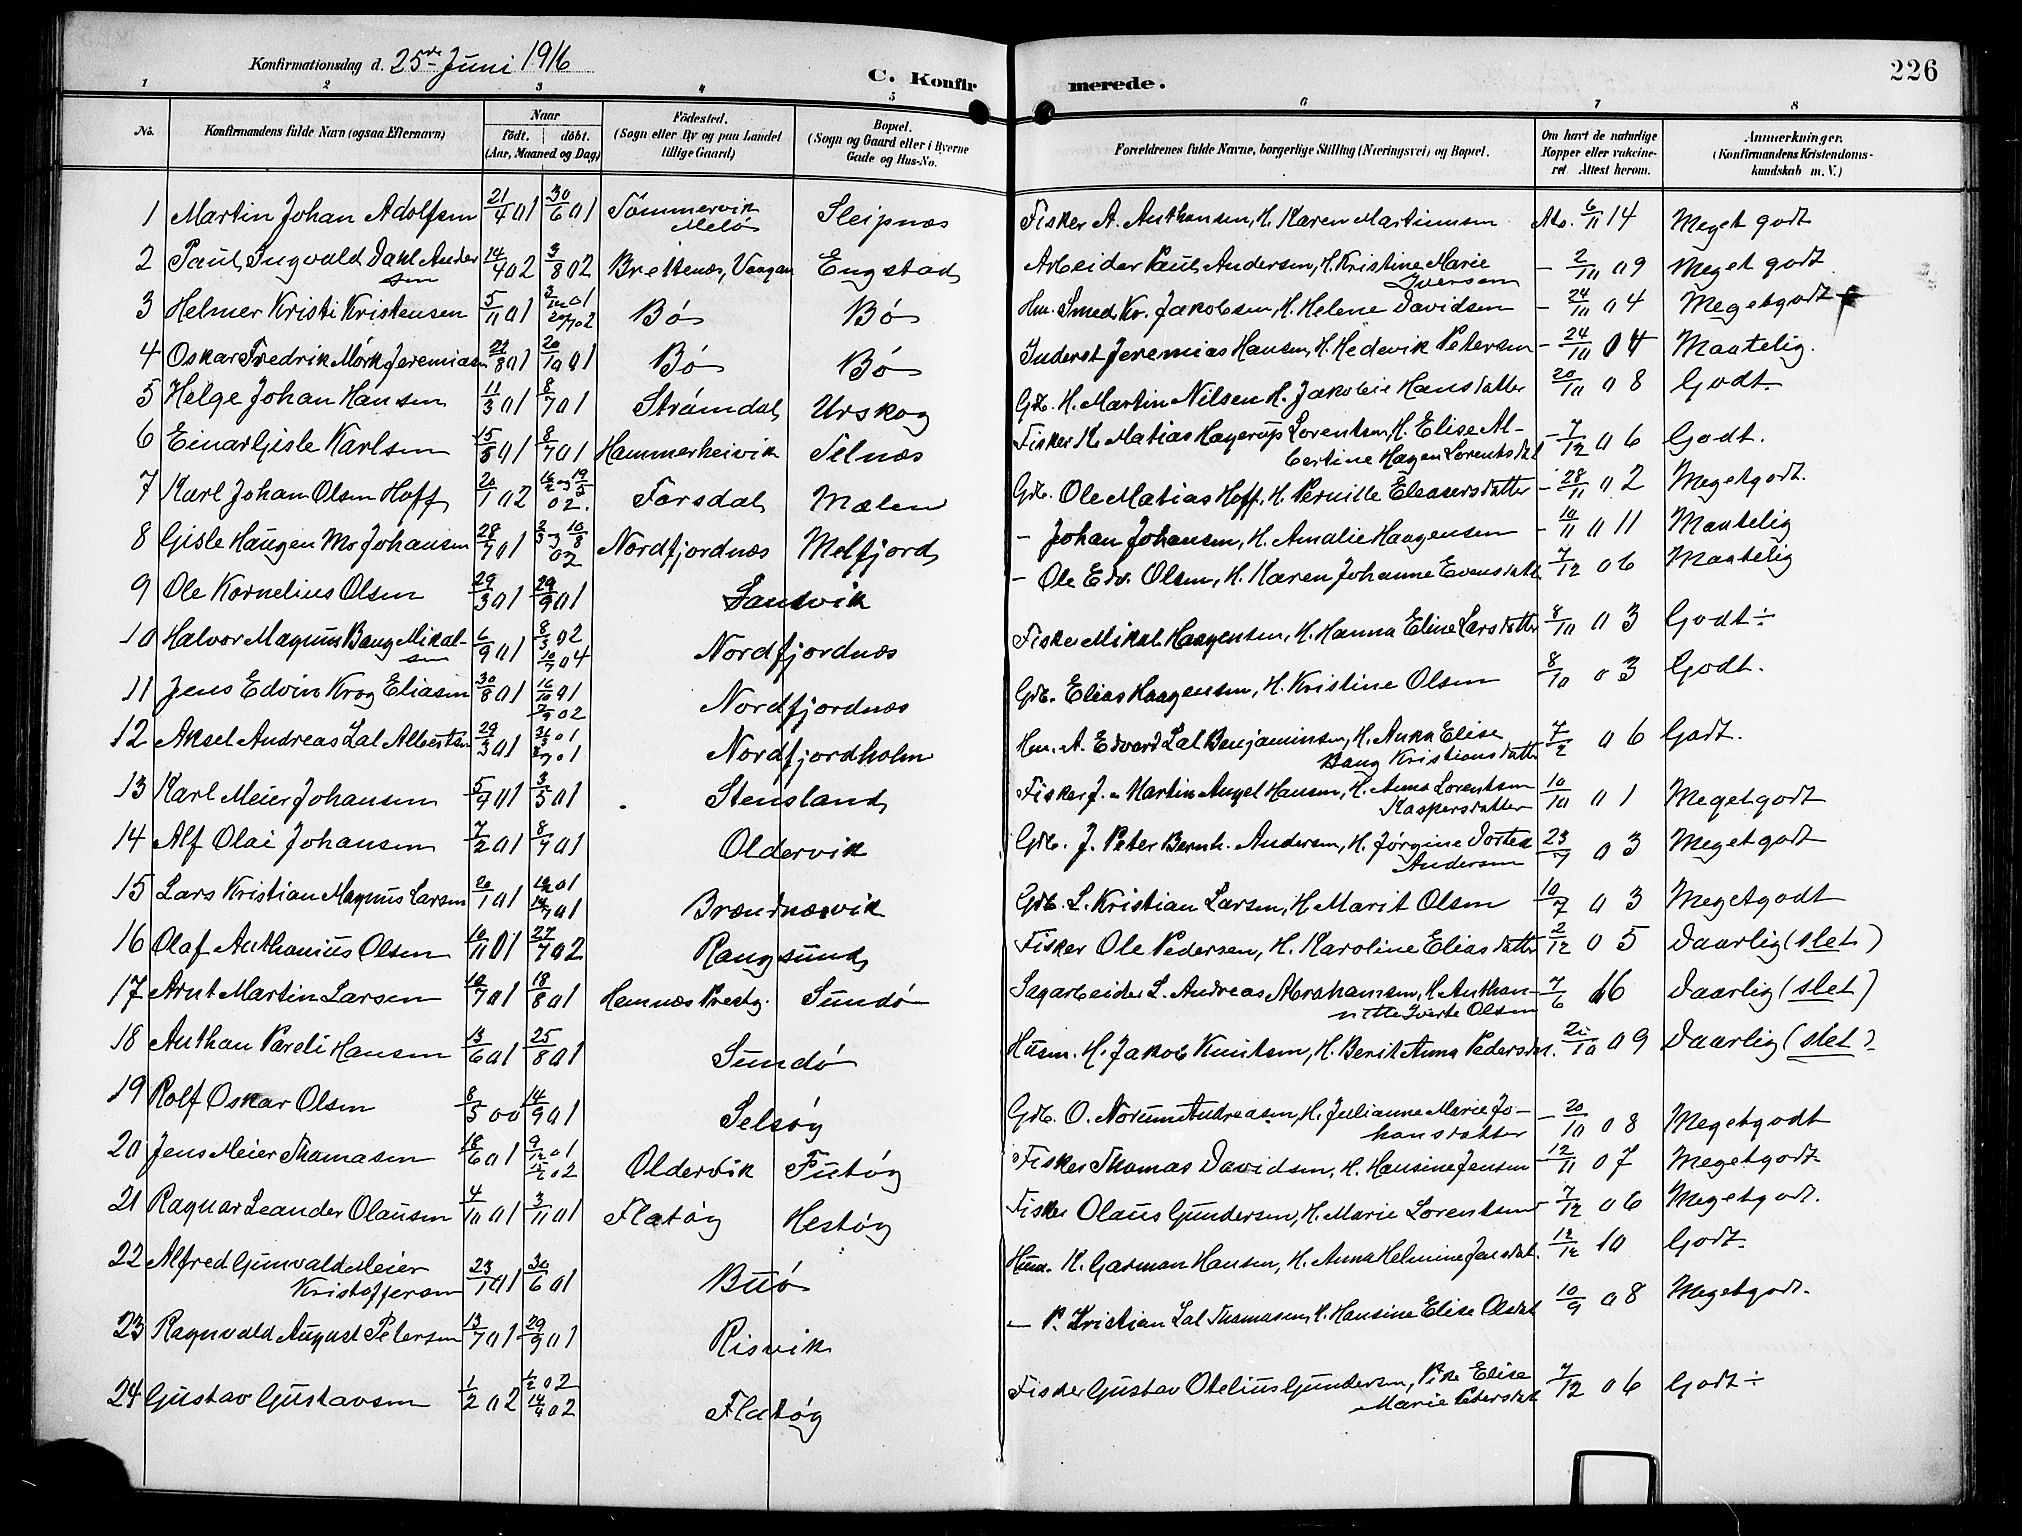 Konfirmationsdag d. 25de Juni 1916
C. Konfirmerede.
226
1 2 3 4 5 6 7 8
No. Konfirmandens fulde Navn (ogsaa Efternavn) Naar født. døbt. (Aar, Maaned og Dag) Födested. (Sogn eller By og paa Landet tillige Gaard) Bopæl. (Sogn og Gaard eller i Byerne Gade og Hus-No. Forældrenes fulde Navne, borgerlige Stilling (Næringsvei) og Bopæl. Om havt de naturlige Kopper eller vakcineret. Attest herom. Anmærkninger. (Konfirmandens Kristendomskundskab m. V.)
1 Martin Johan Adolfsen 21/4 01 30/6 01 Tømmervik Melø Sleipnæs Fisker A. Anthonsen, H. Karen Martinussen 6/11 14 Meget godt
2 Paul Ingvald Dahl Andersen 14/4 02 3/8 02 Brettenæs, Vaagan Engstad Arbeider Paul Andersen, H. Kristine Marie Iversen - 2/10 09 Meget godt
3 Helmer Kristi Kristensen 5/11 01 20/7 02 Bø Bø Hm. Smed Kr. Jakobsen, H. Helene Davidsen - 24/10 04 Meget godt
4 Oskar Fredrik Mørk Jeremiasen 22/8 01 20/10 01 Bø Bø Inderst Jeremias Hansen, H. Hedevik Petersen - 24/10 04 Maatelig.
5 Helge Johan Hansen 11/3 01 8/7 01 Strømdal Urskog Gdb. H. Martin Nilsen H. Jakobie Hansdatter 20/10 08 Godt
6 Einar Gisle Karlsen 15/5 01 8/7 01 Hammerheivik Selnæs Fisker K. Matias Hagerup Lorentsen, H. Elise Albertine Hagen Lorentsdat - 7/12 06 Godt.
7 Karl Johan Olsen Hoff 20/1 02 02. Forsdal Mælen Gdb. Ole Matias Hoff, H. Pernille Eleasersdatter - 28/11 02 Meget godt.
8 Gisle Haugen Mo Johansen 28/7 01 02 Nordfjordnæs Melfjord - Johan Johansen, H. Amalie Haagensen - 10/11 011 Maatelig
9 Ole Kornelius Olsen 29/3 01 29/9 01 Sandvik - Ole Edv. Olsen, H. Karen Johanne Evensdatt 7/12 06 Maatelig
10 Halvor Magnus Bang Mikalsen 6/9 01 8/3 02 10/7 04 Nordfjordnæs Fisker Mikal Haagensen, H. Hanna Eline Larsdatter 8/10 03 Godt ÷
11 Jens Edvin Krog Eliasen 30/8 01 16/10 01 7/9 02 Nordfjordnæs Gdb. Elias Haagensen, H. Kristine Olsen 8/10 03 Godt.
12 Aksel Andreas Lal Albertsen 29/3 01 Nordfjordholm Hm. A. Edvard Lal Benjaminsen, H. Anna Elise Bang Kristiansdatter 7/2 06 Godt.
13 Karl Meier Johansen 5/9 01 3/5 01 Stensland Fisker J. Martin Angel Hansen, H. Anna Lorentsen Kaspersdatter 10/10 01 Meget godt
14 Alf Olai Johansen 7/2 01 8/7 01 Oldervik Gdb. J. Peter Bernh. Andersen, H. Jørgine Dortea Andersen 23/7 03 Meget godt
15 Lars Kristian Magnus Larsen 20/1 01 14/7 01 Brændnæsvik Gdb. L. Kristian Larsen, H. Marit Olsen 10/7 03 Meget godt
16 Olaf Anthonius Olsen 10/11 01 27/7 02 Rangsund Fisker Ole Pedersen, H. Karoline Eliasdatter 2/12 05 Daarlig (slet)
17 Arnt Martin Larsen 10/7 01 18/8 01 Hemnæs Prestg. Sundø Sagarbeider L. Andreas Abrahamsen, H. Anthonnitte Iverte Olsen 7/6 16 Daarlig (slet)
18 Anthon Pareli Hansen 13/6 01 25/8 01 Sundø Husm. H. Jakob Knutsen, H. Berit Anna Pedersdat. 20/10 09 Daarlig (slet)
19 Rolf Oskar Olsen 8/5 00 14/9 01 Selsøy Gdb. O. Norum Andreasen, H. Julianne Marie Johansdatter - 20/10 08 Meget godt
20 Jens Meier Thomasen 18/6 01 9/12 01 02 Oldervik Futøy Fisker Thomas Davidsen, H. Hansine Jensen - 12/11 07 Meget godt
21 Ragnar Leander Olausen 4/10 01 3/11 01 Flatøy Hestøy Fisker Olaus Gundersen, H. Marie Lorentsen - 7/12 06 Meget godt.
22 Alfred Gunvald Meier Kristoffersen 23/1 01 30/6 01 Buø Husm. K. Garman Hansen, H. Anna Helmine Jensdat. 12/12 10 Godt.
23 Ragnvald August Petersen 13/7 01 29/9 01 Risvik - P. Kristian Lal Thomasen, H. Hansine Elise Olsdat 10/9 08 Meget godt.
24 Gustav Gustavsen 1/2 02 6/2 02 14/9 02 Flatøy Fisker Gustav Otelius Gundersen, Pike Elise Marie Petersdat 7/12 06 Godt ÷